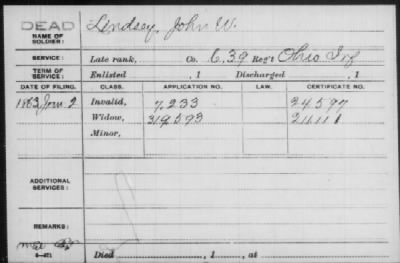 DEAD
NAME OF SOLDIER: Lindsey, John W.
SERVICE: Late rank, Co. C, 39 Reg't Ohio Inf
TERM OF SERVICE: Enlisted , 1 Discharged , 1
DATE OF FILING. CLASS. APPLICATION NO. LAW. CERTIFICATE NO.
Invalid, 7233 34597
1883 Jan. 2 Widow, 319,593
Minor,
ADDITIONAL SERVICES:
REMARKS:
Died , 1 , at